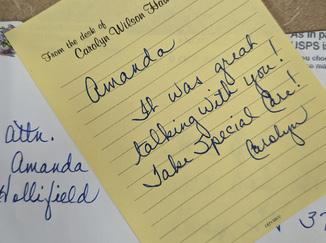 From the desk of
Carolyn Wilson
Amanda
It was great
talking with you!
Take Special Care!
Carolyn
Attn.
Amanda
Hollifield
As in
USPS is